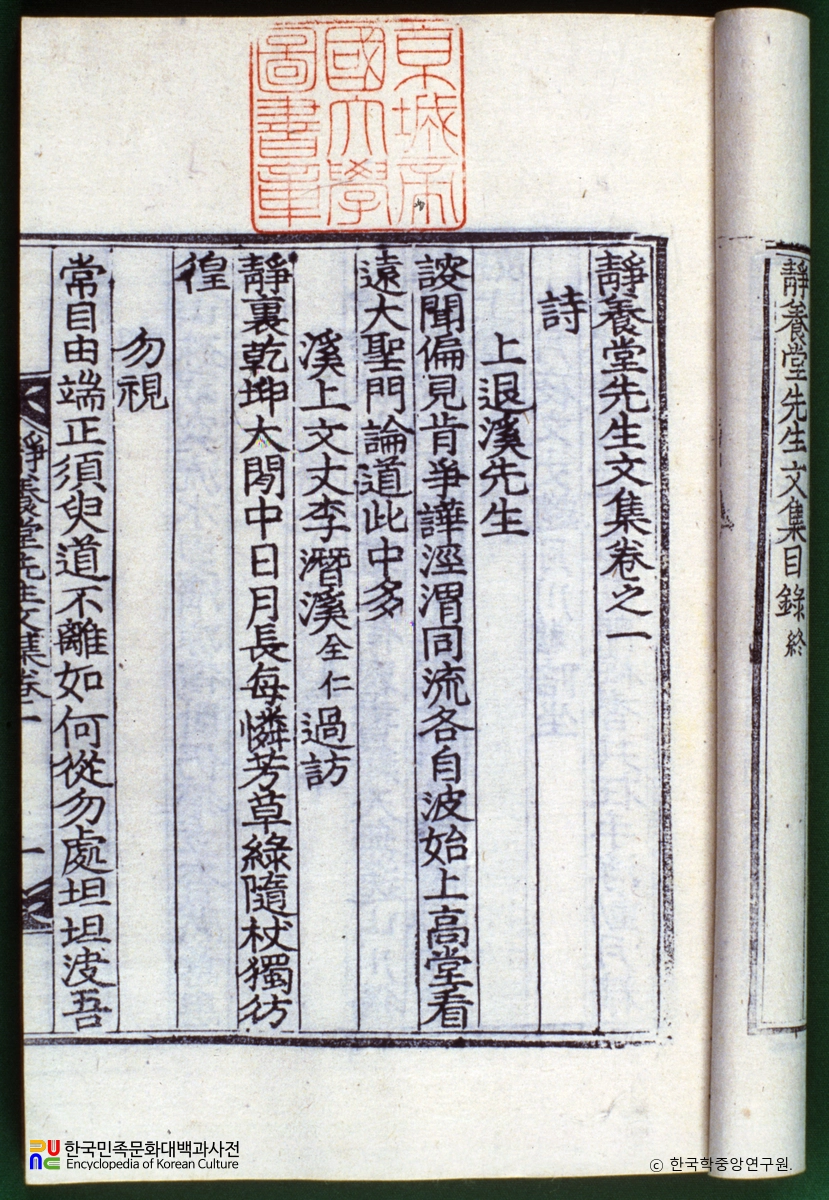 靜養堂先生文集目錄終
京城帝
國大學
圖書章
靜養堂先生文集卷之一
詩
上退溪先生
謏聞偏見肯爭譁涇渭同流各自波始上高堂看
遠大聖門論道此中多
溪上文丈李潛溪全仁過訪
靜裏乾坤大閒中日月長每憐芳草綠隨杖獨彷
徨
勿視
常自由端正須臾道不離如何從勿處坦坦吾
靜養堂先生文集卷一 一
한국민족문화대백과사전
Encyclopedia of Korean Culture
© 한국학중앙연구원.